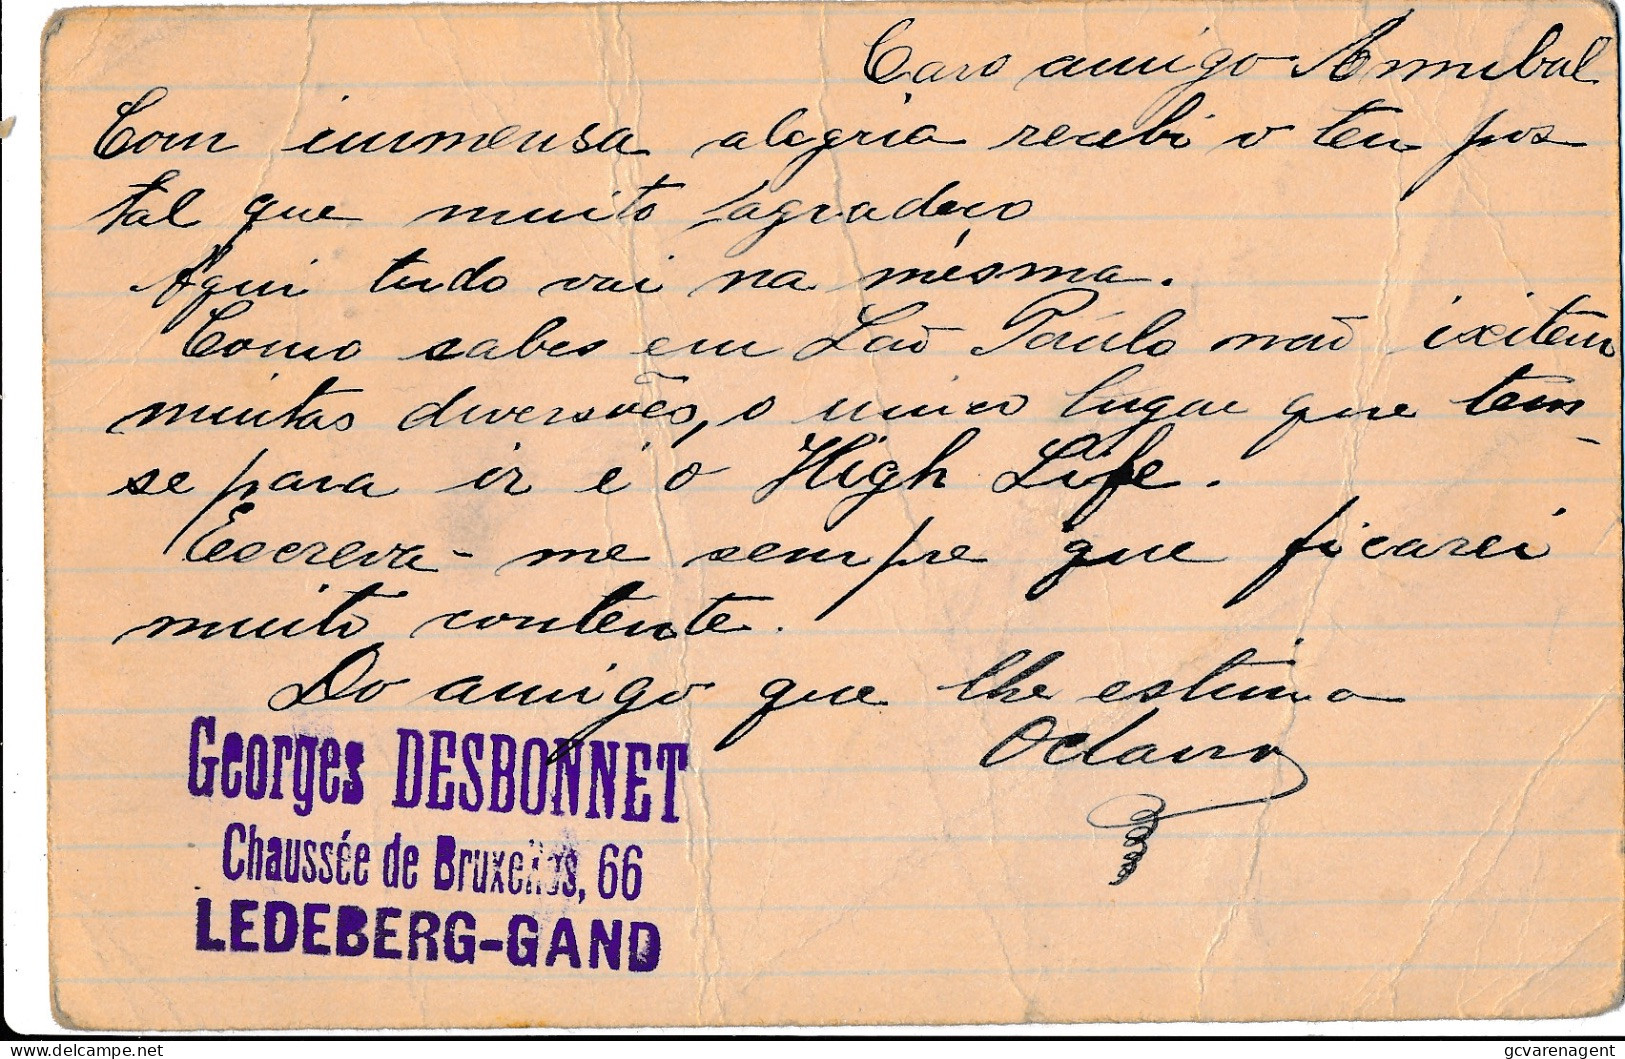 Caro amigo Annibal
Com immensa alegria recebi o teu pos
tal que muito agradeço
Aqui tudo vai na mésma.
Como sabes em Saõ Paúlo naõ ixitem
muitas diversões, o unico lugar que tem-
se para ir é o High Life.
Escreva-me sempre que ficarei
muito contente.
Do amigo que lhe estima
Octavio
Georges DESBONNET
Chaussée de Bruxelles, 66
LEDEBERG-GAND
delcampe.net
gcvarenagent